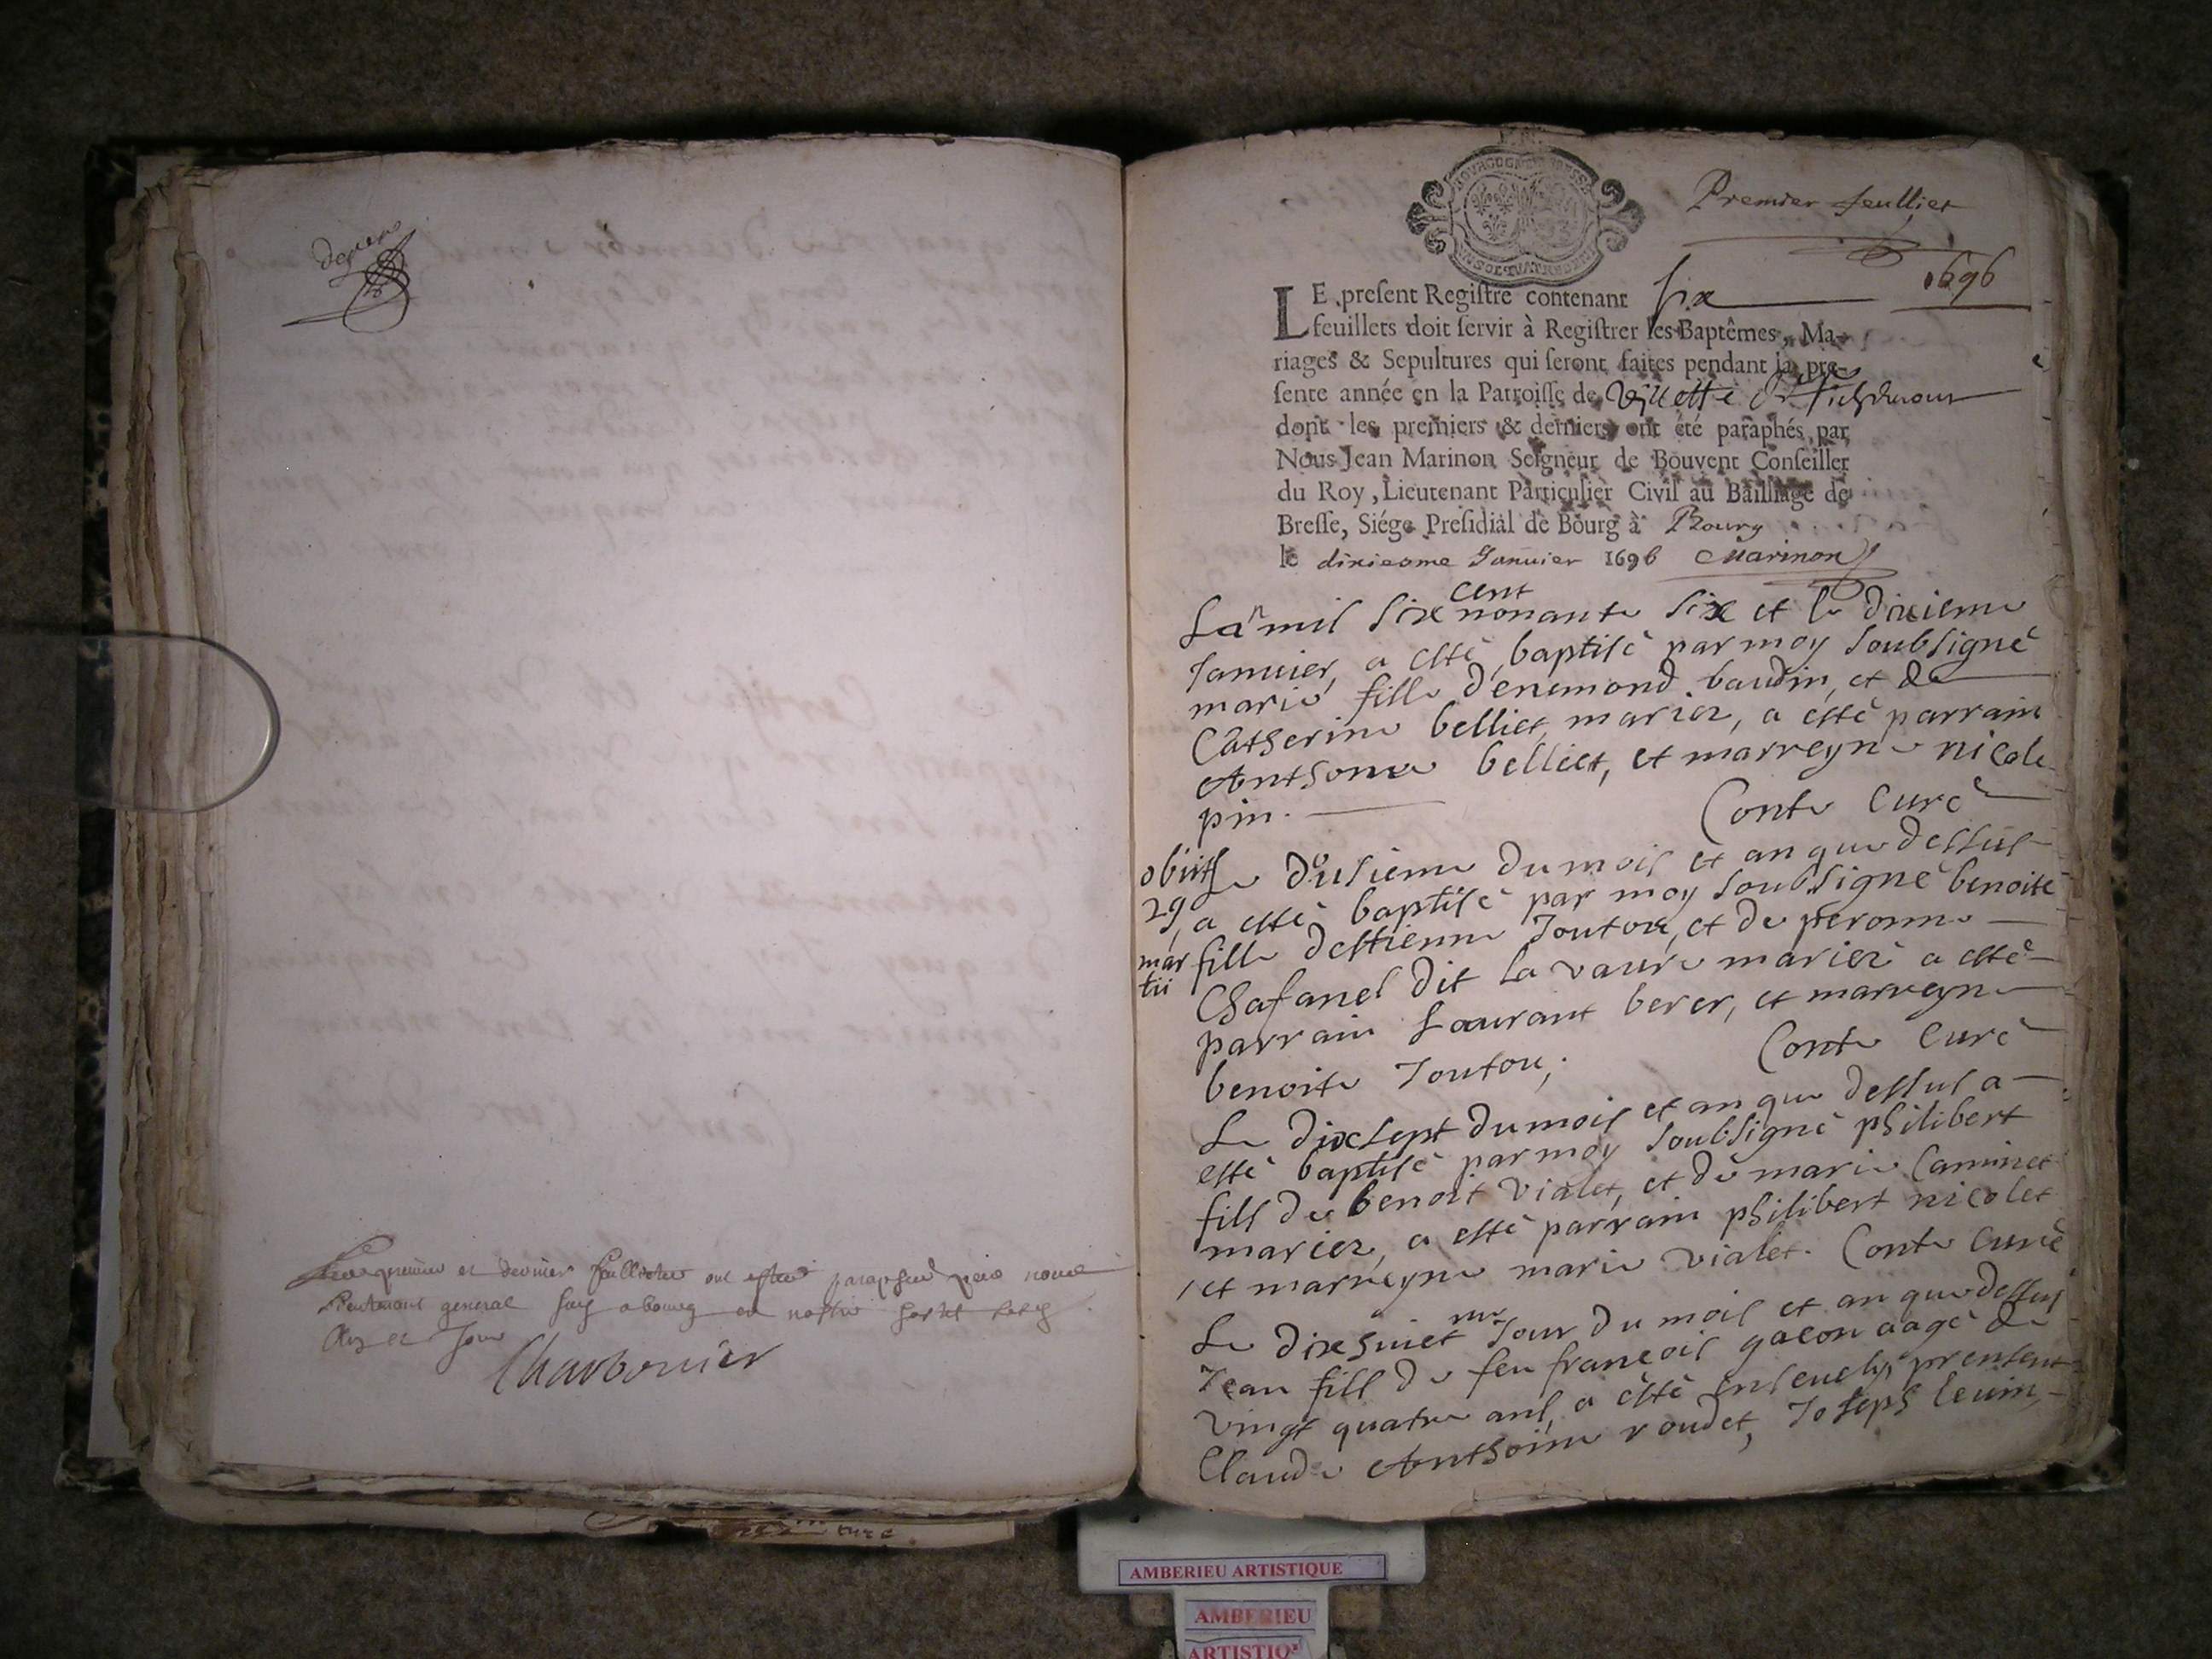 Les premier et dernier feuillets ont esté paraphé par nous
Lieutenant general a bourg en nostre hostel
an et Jour
Charbonier
Premier feulliet
1696
LE present Registre contenant six
feuillets doit servir à Registrer les Baptêmes, Ma-
riages & Sepultures qui seront faites pendant la pre-
sente année en la Patroisse de Villette et Richemont
dont les premiers & derniers ont été paraphés par
Nous Jean Marinon Seigneur de Bouvent Conseiller
du Roy, Lieutenant Particulier Civil au Bailliage de
Bresse, Siége Presidial de Bourg à Bourg
le dixiesme Januier 1696 Marinon
cent
Lan mil six nonante six et le dixieme
Januier, a esté baptisé par moy soubsigné
marie fille d'enemond baudin, et de
Catherine belliet, mariez, a esté parrain
Anthoine belliet, et marreyne nicole
pin. Conte Curé
obiit 29 martii
Le dousieme du mois et an que dessus
a esté baptisé par moy soubsigné benoite
fille destienne Joutou, et de peronne
Chafanel dit la vaure mariez a esté
parrain Laurant berer, et marreyne
benoite Joutou, Conte Curé
Le dixsept du mois et an que dessus a
esté baptisé par moy soubsigné philibert
fils de benoit vialet, et de marie Caminet
mariez, a esté parrain philibert nicolet
et marreyne marie vialet. Conte Curé
Le dixhuiet me Jour du mois et an que dessus
Jean fils de feu françois gacon aagé de
vingt quatre ans, a esté enseuely, presents
Claude Anthoine roudet, Joseph leuin,
AMBERIEU ARTISTIQUE
AMBERIEU
ARTISTIQ